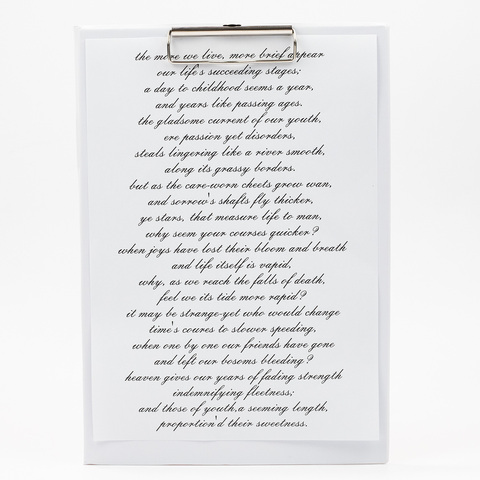 the more we live, more brief appear
our life's succeeding stages;
a day to childhood seems a year,
and years like passing ages.
the gladsome current of our youth,
ere passion yet disorders,
steals lingering like a river smooth,
along its grassy borders.
but as the care-worn cheets grow wan,
and sorrow's shafts fly thicker,
ye stars, that measure life to man,
why seem your courses quicker?
when joys have lost their bloom and breath
and life itself is vapid,
why, as we reach the falls of death,
feel we its tide more rapid?
it may be strange-yet who would change
time's coures to slower speeding,
when one by one our friends have gone
and left our bosoms bleeding?
heaven gives our years of fading strength
indemnifying fleetness;
and those of youth,a seeming length,
proportion'd their sweetness.